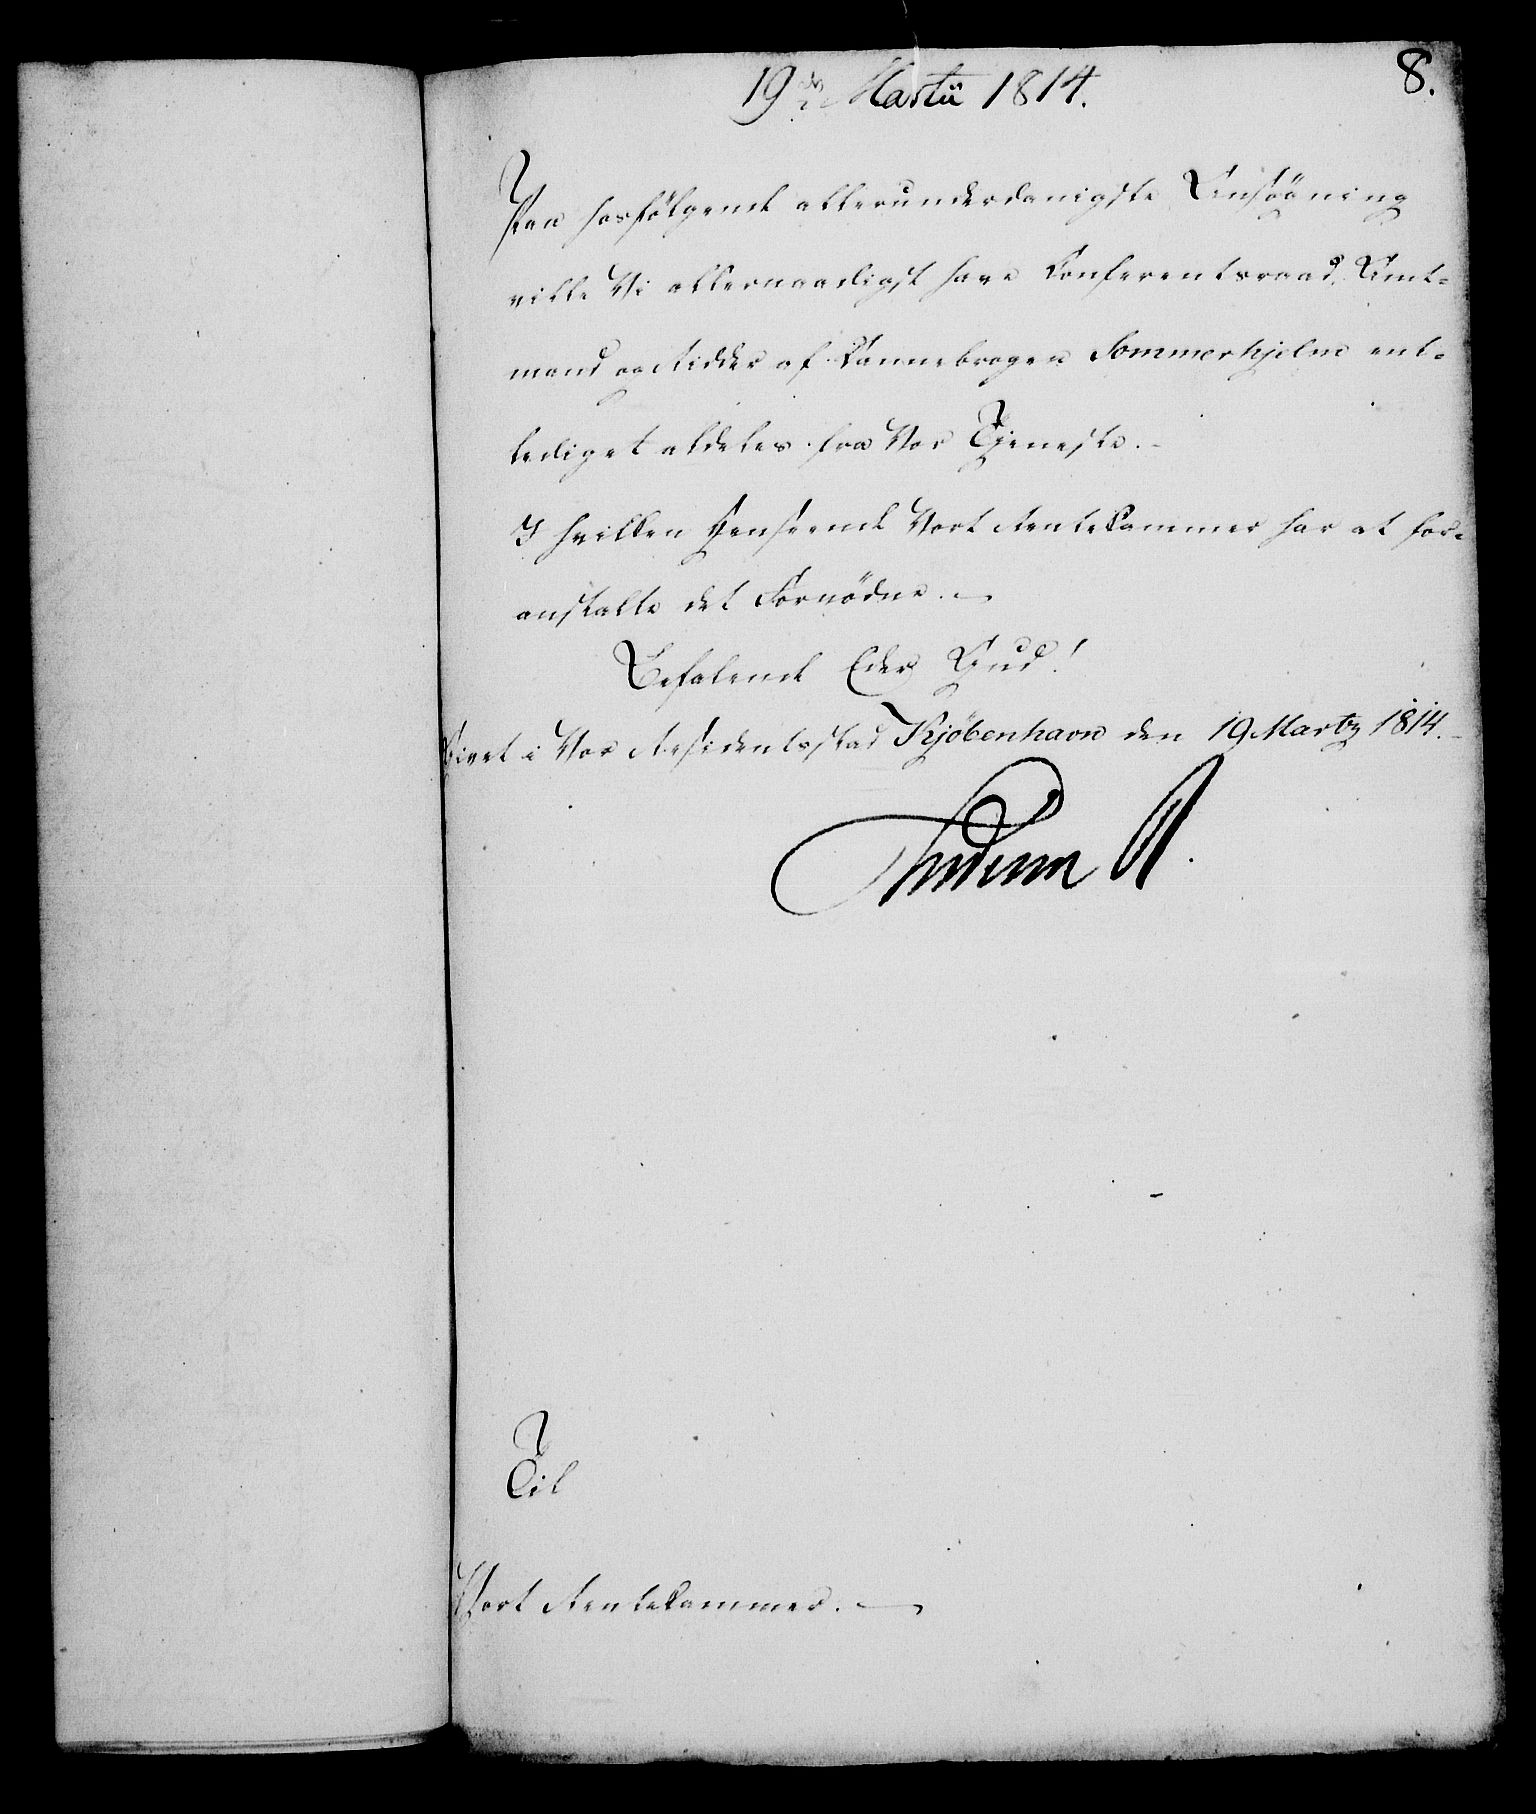 19de Martii 1814.
8.
Paa hosfølgende allerunderdanigste Ansøgning
ville Vi allernaadigst have Conferentsraad, Amt-
mand og Ridder af Dannebrogen Sommerhjelm ent-
lediget aldeles fra Vor Tjeneste.-
I hvilken Henseende Vort Rentekammer har at for-
anstalte det Fornödne.-
Befalende Eder Gud!
Givet i Vor Residentsstad Kjöbenhavn den 19 Martz 1814.-
Frederik R.
Til
Vort Rentekammer.-